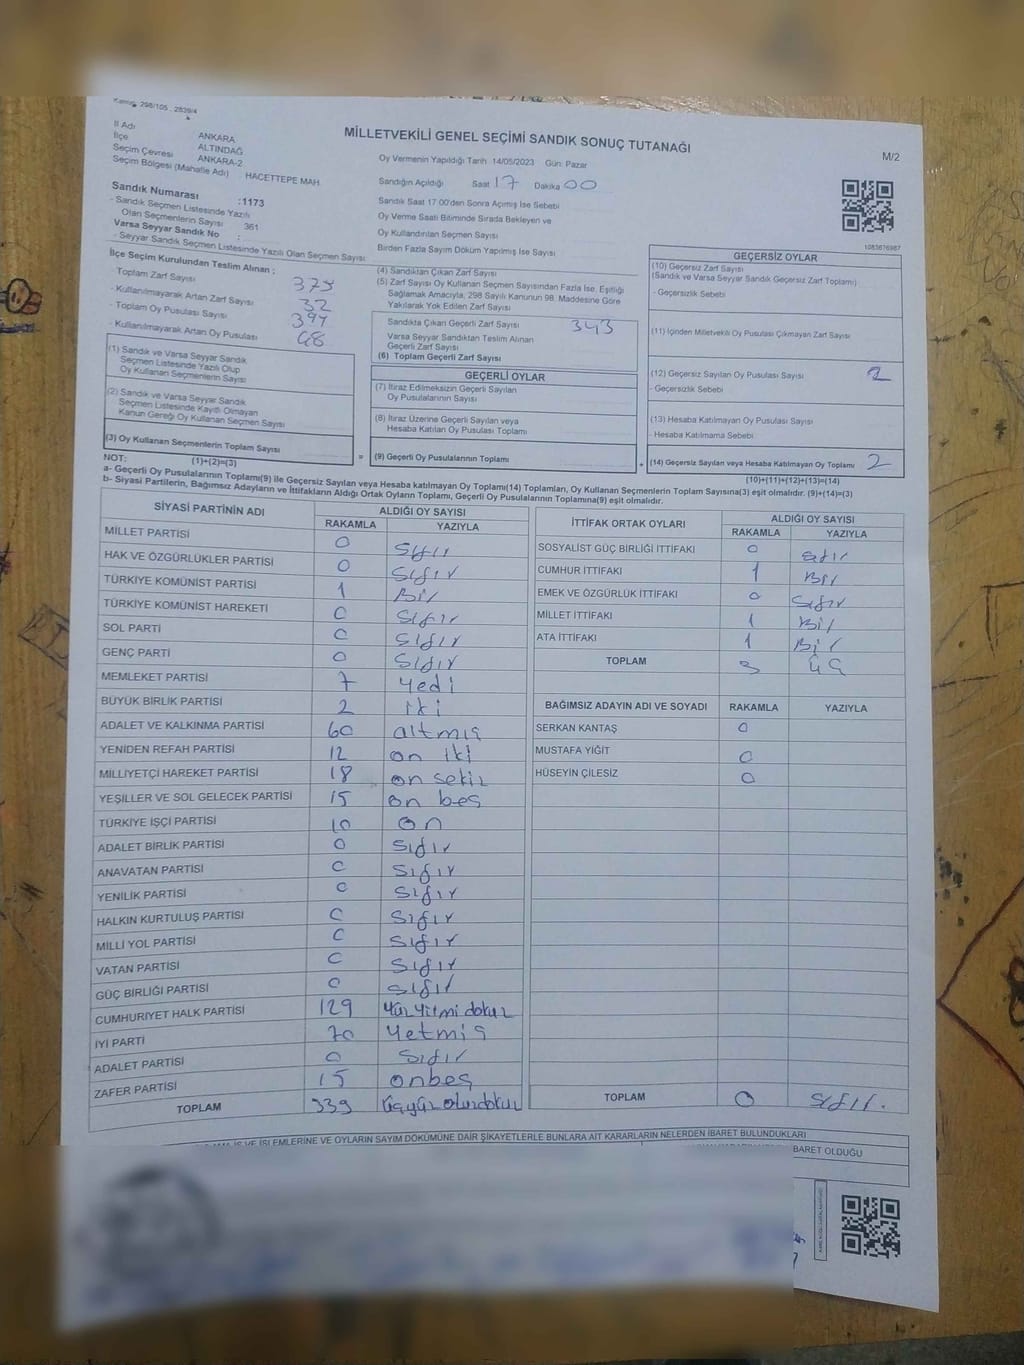 298/105 2839/4
MİLLETVEKİLİ GENEL SEÇİMİ SANDIK SONUÇ TUTANAĞI
M/2
İl Adı ANKARA
İlçe ALTINDAĞ
Seçim Çevresi ANKARA-2
Seçim Bölgesi (Mahalle Adı) HACETTEPE MAH
Sandık Numarası :1173
- Sandık Seçmen Listesinde Yazılı
Olan Seçmenlerin Sayısı 361
Varsa Seyyar Sandık No :
- Seyyar Sandık Seçmen Listesinde Yazılı Olan Seçmen Sayısı
Oy Vermenin Yapıldığı Tarih 14/05/2023 Gün: Pazar
Sandığın Açıldığı Saat 17 Dakika 00
Sandık Saat 17.00'den Sonra Açılmış İse Sebebi
Oy Verme Saati Bitiminde Sırada Bekleyen ve
Oy Kullandırılan Seçmen Sayısı
Birden Fazla Sayım Döküm Yapılmış İse Sayısı
1083676987
İlçe Seçim Kurulundan Teslim Alınan ;
- Toplam Zarf Sayısı 375
- Kullanılmayarak Artan Zarf Sayısı 32
- Toplam Oy Pusulası Sayısı
- Kullanılmayarak Artan Oy Pusulası
(1) Sandık ve Varsa Seyyar Sandık
Seçmen Listesinde Yazılı Olup
Oy Kullanan Seçmenlerin Sayısı
(2) Sandık ve Varsa Seyyar Sandık
Seçmen Listesinde Kayıtlı Olmayan
Kanun Gereği Oy Kullanan Seçmen Sayısı
(3) Oy Kullanan Seçmenlerin Toplam Sayısı
(1)+(2)=(3)
(4) Sandıktan Çıkan Zarf Sayısı
(5) Zarf Sayısı Oy Kullanan Seçmen Sayısından Fazla İse, Eşitliği
Sağlamak Amacıyla, 298 Sayılı Kanunun 98. Maddesine Göre
Yakılarak Yok Edilen Zarf Sayısı
Sandıkta Çıkan Geçerli Zarf Sayısı 343
Varsa Seyyar Sandıktan Teslim Alınan
Geçerli Zarf Sayısı
(6) Toplam Geçerli Zarf Sayısı
GEÇERLİ OYLAR
(7) İtiraz Edilmeksizin Geçerli Sayılan
Oy Pusulalarının Sayısı
(8) İtiraz Üzerine Geçerli Sayılan veya
Hesaba Katılan Oy Pusulası Toplamı
=
(9) Geçerli Oy Pusulalarının Toplamı
+
GEÇERSİZ OYLAR
(10) Geçersiz Zarf Sayısı
(Sandık ve Varsa Seyyar Sandık Geçersiz Zarf Toplamı)
- Geçersizlik Sebebi
(11) İçinden Milletvekili Oy Pusulası Çıkmayan Zarf Sayısı
(12) Geçersiz Sayılan Oy Pusulası Sayısı 2
- Geçersizlik Sebebi
(13) Hesaba Katılmayan Oy Pusulası Sayısı
- Hesaba Katılmama Sebebi
(14) Geçersiz Sayılan veya Hesaba Katılmayan Oy Toplamı 2
(10)+(11)+(12)+(13)=(14)
NOT:
a- Geçerli Oy Pusulalarının Toplamı(9) ile Geçersiz Sayılan veya Hesaba Katılmayan Oy Toplamı(14) Toplamları, Oy Kullanan Seçmenlerin Toplam Sayısına(3) eşit olmalıdır. (9)+(14)=(3)
b- Siyasi Partilerin, Bağımsız Adayların ve İttifakların Aldığı Ortak Oyların Toplamı, Geçerli Oy Pusulalarının Toplamına(9) eşit olmalıdır.
SİYASİ PARTİNİN ADI ALDIĞI OY SAYISI
RAKAMLA YAZIYLA
MİLLET PARTİSİ 0 Sıfır
HAK VE ÖZGÜRLÜKLER PARTİSİ 0 Sıfır
TÜRKİYE KOMÜNİST PARTİSİ 1 Bir
TÜRKİYE KOMÜNİST HAREKETİ 0 Sıfır
SOL PARTİ 0 Sıfır
GENÇ PARTİ 0 Sıfır
MEMLEKET PARTİSİ 7 Yedi
BÜYÜK BİRLİK PARTİSİ 2 iki
ADALET VE KALKINMA PARTİSİ 60 altmış
YENİDEN REFAH PARTİSİ 12 on iki
MİLLİYETÇİ HAREKET PARTİSİ 18 on sekiz
YEŞİLLER VE SOL GELECEK PARTİSİ 15 on beş
TÜRKİYE İŞÇİ PARTİSİ 10 on
ADALET BİRLİK PARTİSİ 0 Sıfır
ANAVATAN PARTİSİ 0 Sıfır
YENİLİK PARTİSİ 0 Sıfır
HALKIN KURTULUŞ PARTİSİ 0 Sıfır
MİLLİ YOL PARTİSİ 0 Sıfır
VATAN PARTİSİ 0 Sıfır
GÜÇ BİRLİĞİ PARTİSİ 0 Sıfır
CUMHURİYET HALK PARTİSİ 129 Yüz Yirmi dokuz
İYİ PARTİ 70 Yetmiş
ADALET PARTİSİ 0 Sıfır
ZAFER PARTİSİ 15 onbeş
TOPLAM 339 üçyüz otuzdokuz
İTTİFAK ORTAK OYLARI ALDIĞI OY SAYISI
RAKAMLA YAZIYLA
SOSYALİST GÜÇ BİRLİĞİ İTTİFAKI 0 Sıfır
CUMHUR İTTİFAKI 1 Bir
EMEK VE ÖZGÜRLÜK İTTİFAKI 0 Sıfır
MİLLET İTTİFAKI 1 Bir
ATA İTTİFAKI 1 Bir
TOPLAM 3 üç
BAĞIMSIZ ADAYIN ADI VE SOYADI RAKAMLA YAZIYLA
SERKAN KANTAŞ 0
MUSTAFA YİĞİT 0
HÜSEYİN ÇİLESİZ 0
TOPLAM 0 Sıfır.
İŞ VE İŞLEMLERİNE VE OYLARIN SAYIM DÖKÜMÜNE DAİR ŞİKAYETLERLE BUNLARA AİT KARARLARIN NELERDEN İBARET BULUNDUKLARI
BARET OLDUĞU